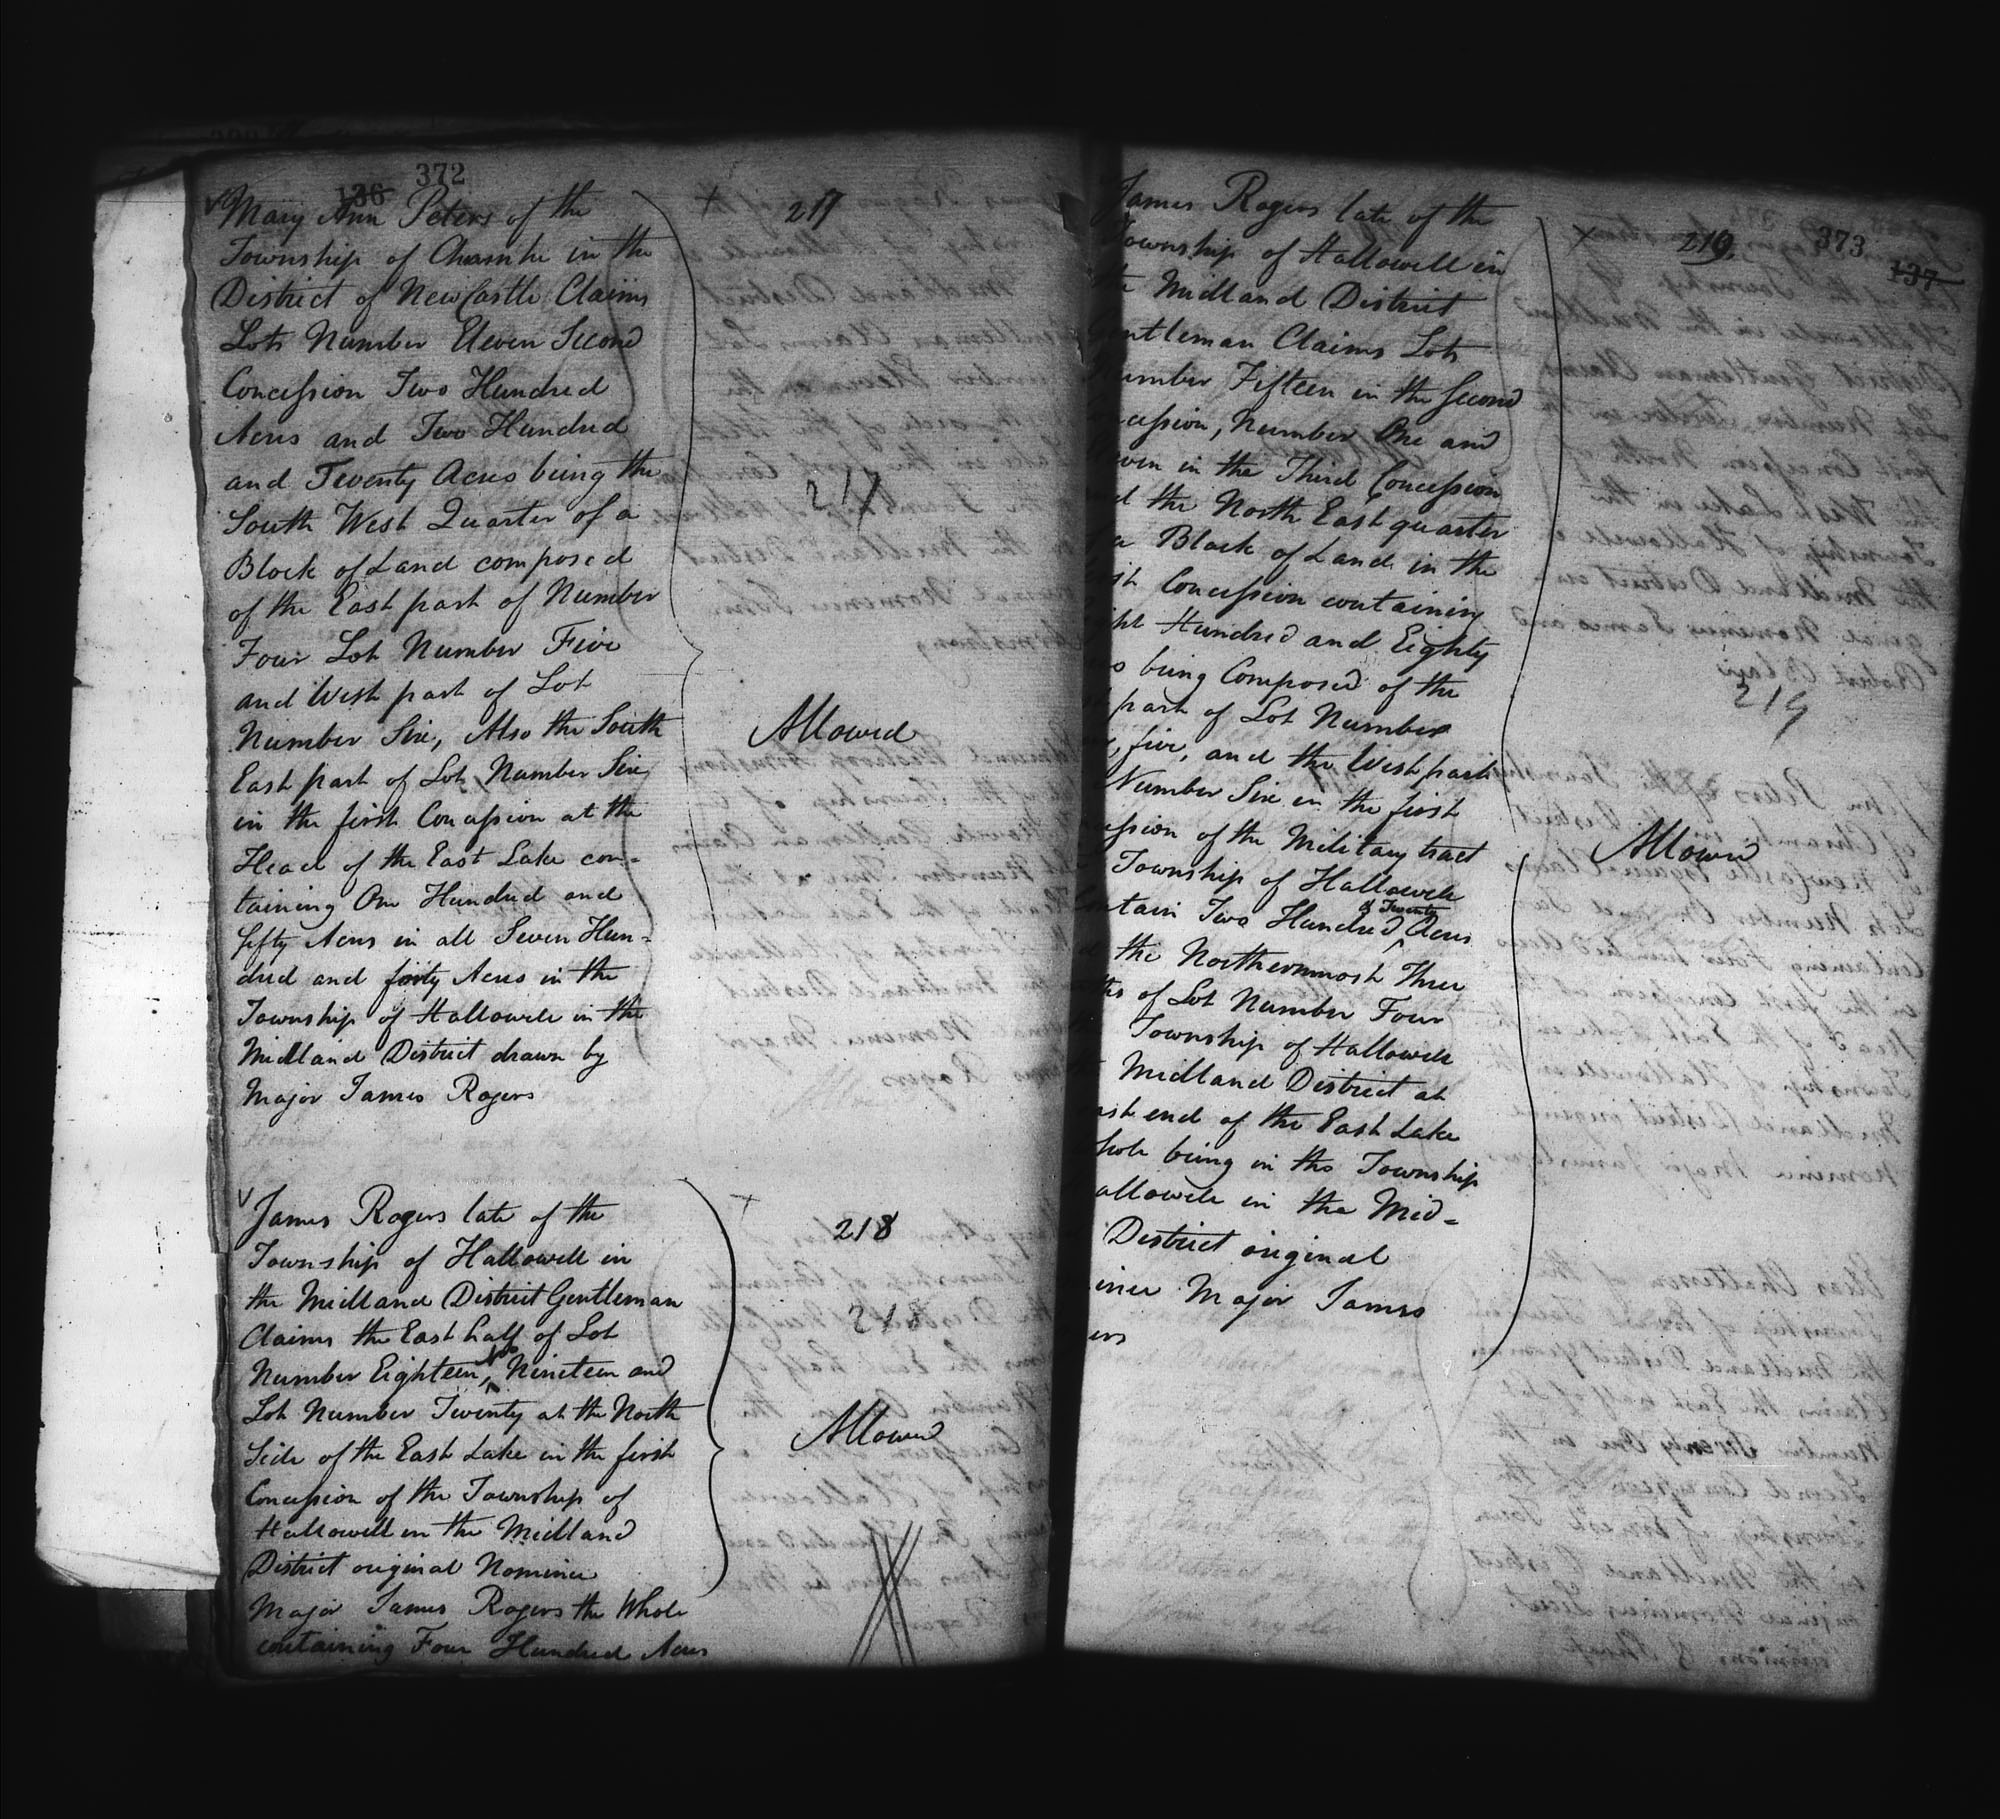 372
136
Mary Ann Peters of the
Township of Chambe in the
District of NewCastle Claims
Lots Number Eleven Second
Concession Two Hundred
Acres and Two Hundred
and Twenty Acres being the
South West Quarter of a
Block of Land composed
of the East part of Number
Four Lot Number Five
and West part of Lot
Number Six, Also the South
East part of Lot Number Six
in the first Concession at the
Head of the East Lake con=
taining One Hundred and
fifty Acres in all Seven Hun=
dred and forty Acres in the
Township of Hallowell in the
Midland District drawn by
Major James Rogers
217
217
Allowed
James Rogers late of the
Township of Hallowell in
the Midland District Gentleman
Claims the East half of Lot
Number Eighteen, Nineteen and
Lot Number Twenty at the North
Side of the East Lake in the first
Concession of the Township of
Hallowell in the Midland
District original Nominee
Major James Rogers the Whole
containing Four Hundred Acres
218
218
Allowed
James Rogers late of the
Township of Hallowell in
the Midland District
entleman Claims Lots
umber Fifteen in the Second
cession, Number One and
ven in the Third Concession
d the North East quarter
a Block of Land in the
Concession containing
ht Hundred and Eighty
being Composed of the
part of Lot Number
five, and the West part
Number Six in the first
ession of the Military tract
Township of Hallowell
ntain Two Hundred & Twenty Acres
the Northernmost Three
of Lot Number Four
Township of Hallowell
Midland District at
end of the East Lake
hole being in the Township
allowell in the Mid=
District original
inee Major James
ers
219.
373
137
219
Allowed